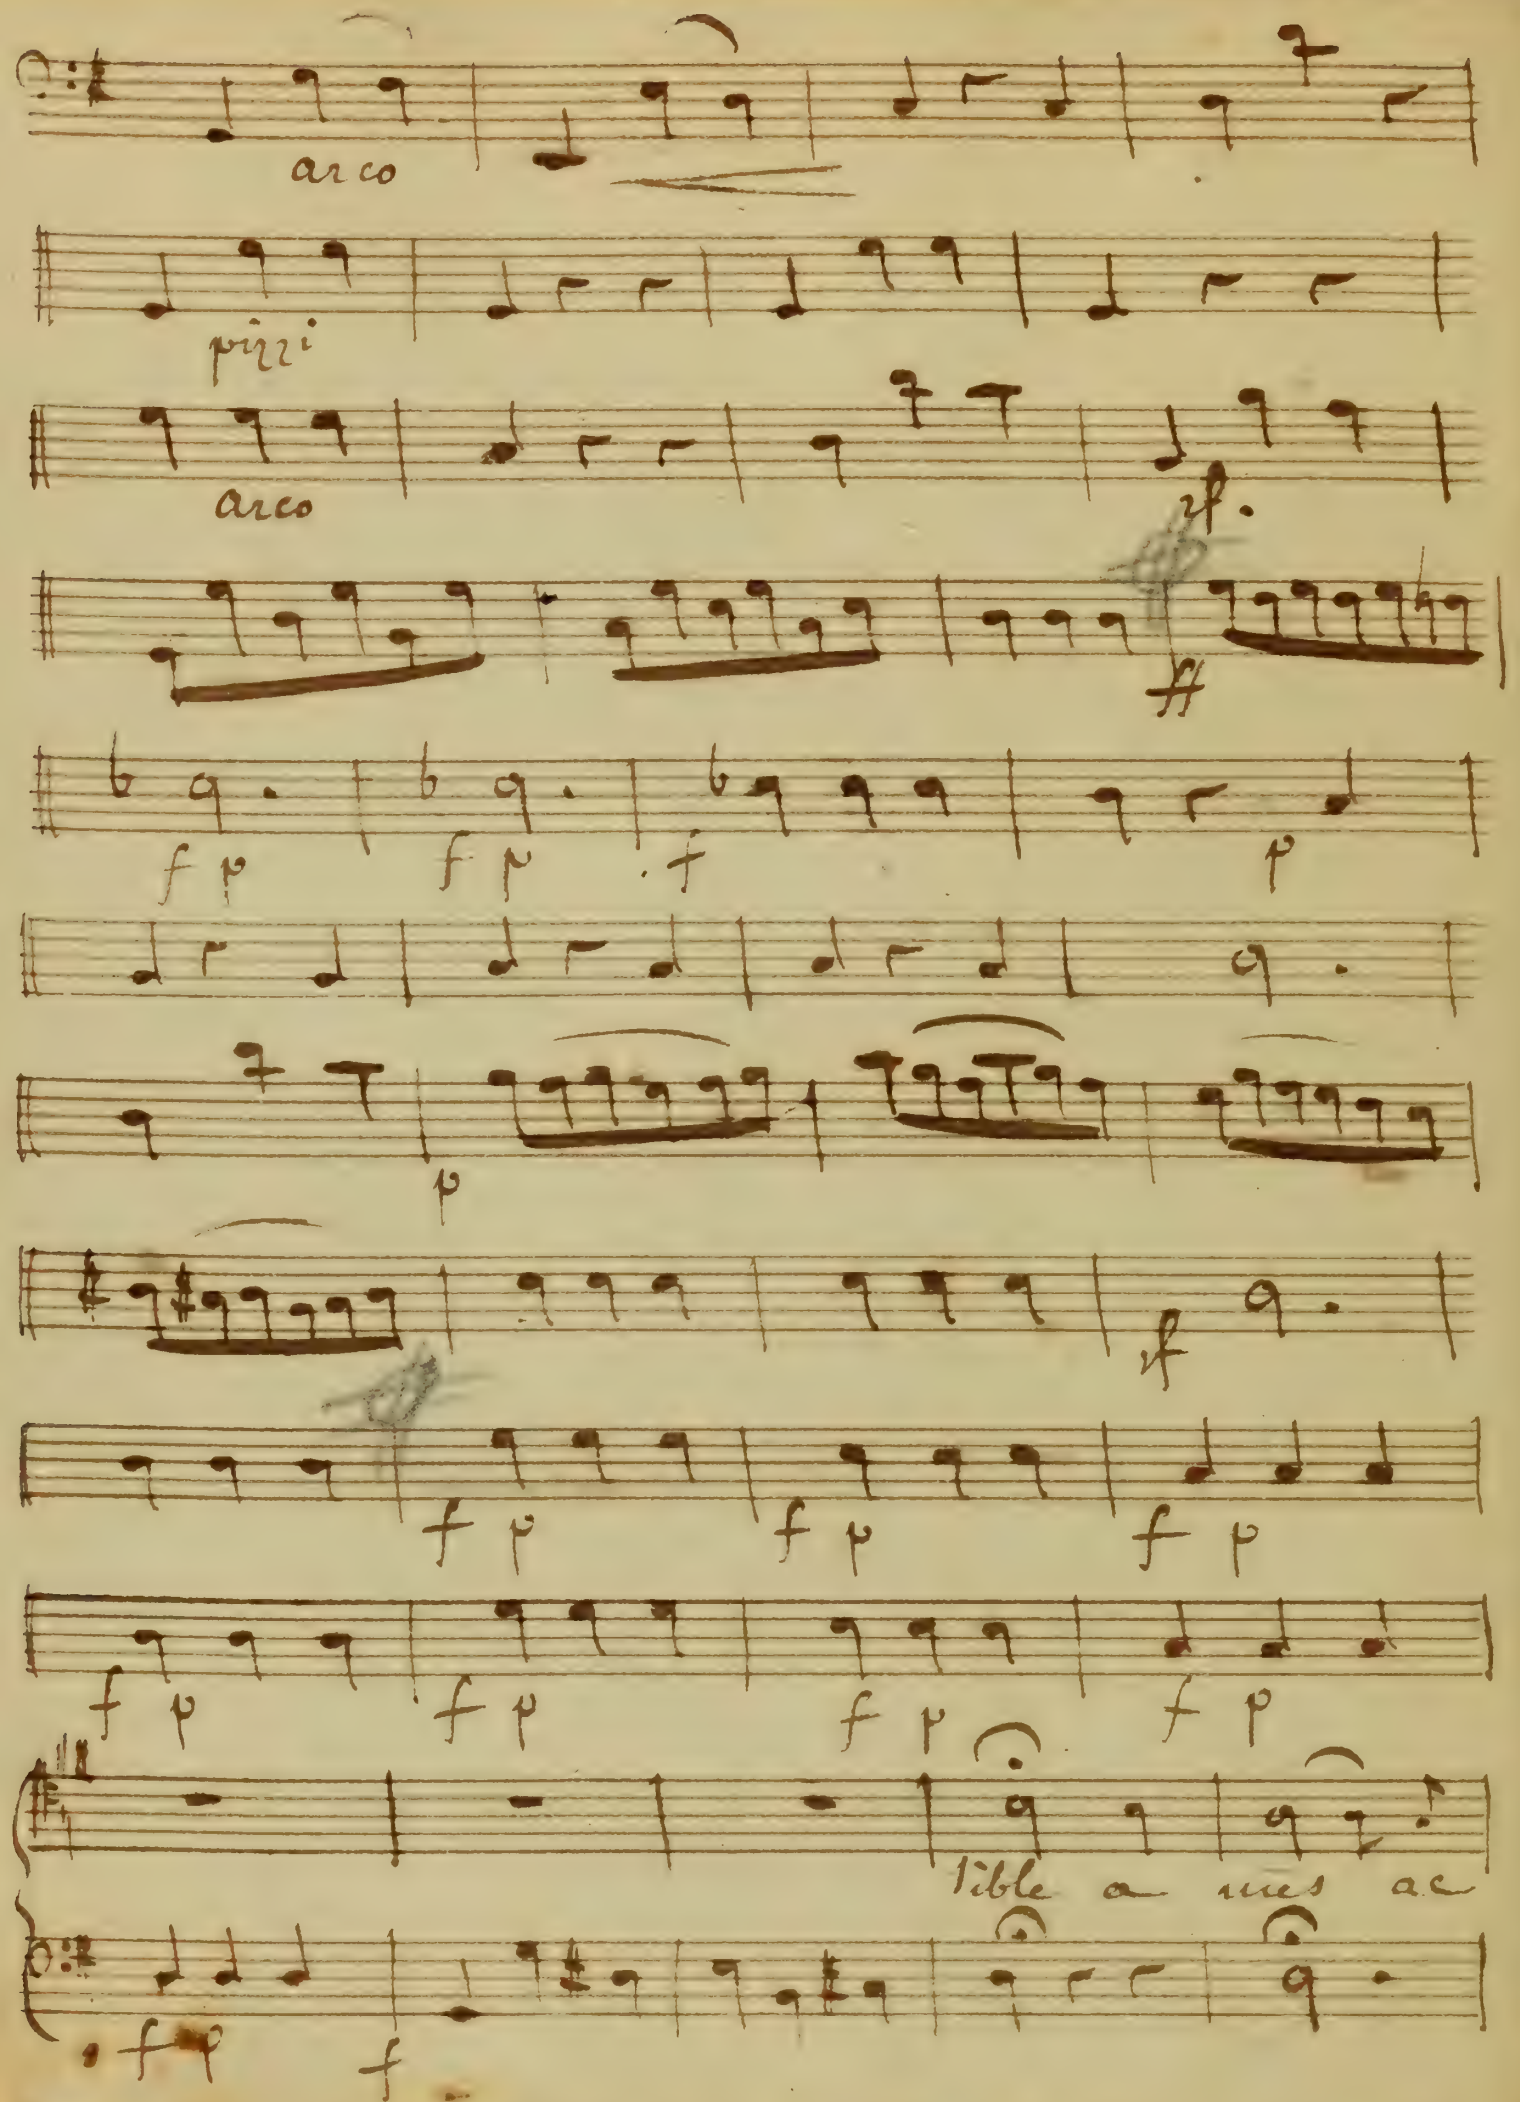 arco
pizzi
arco sf.
ff
f p f p f p
p
sf
f p f p f p
f p f p f p f p
sible a mes ac
f p f